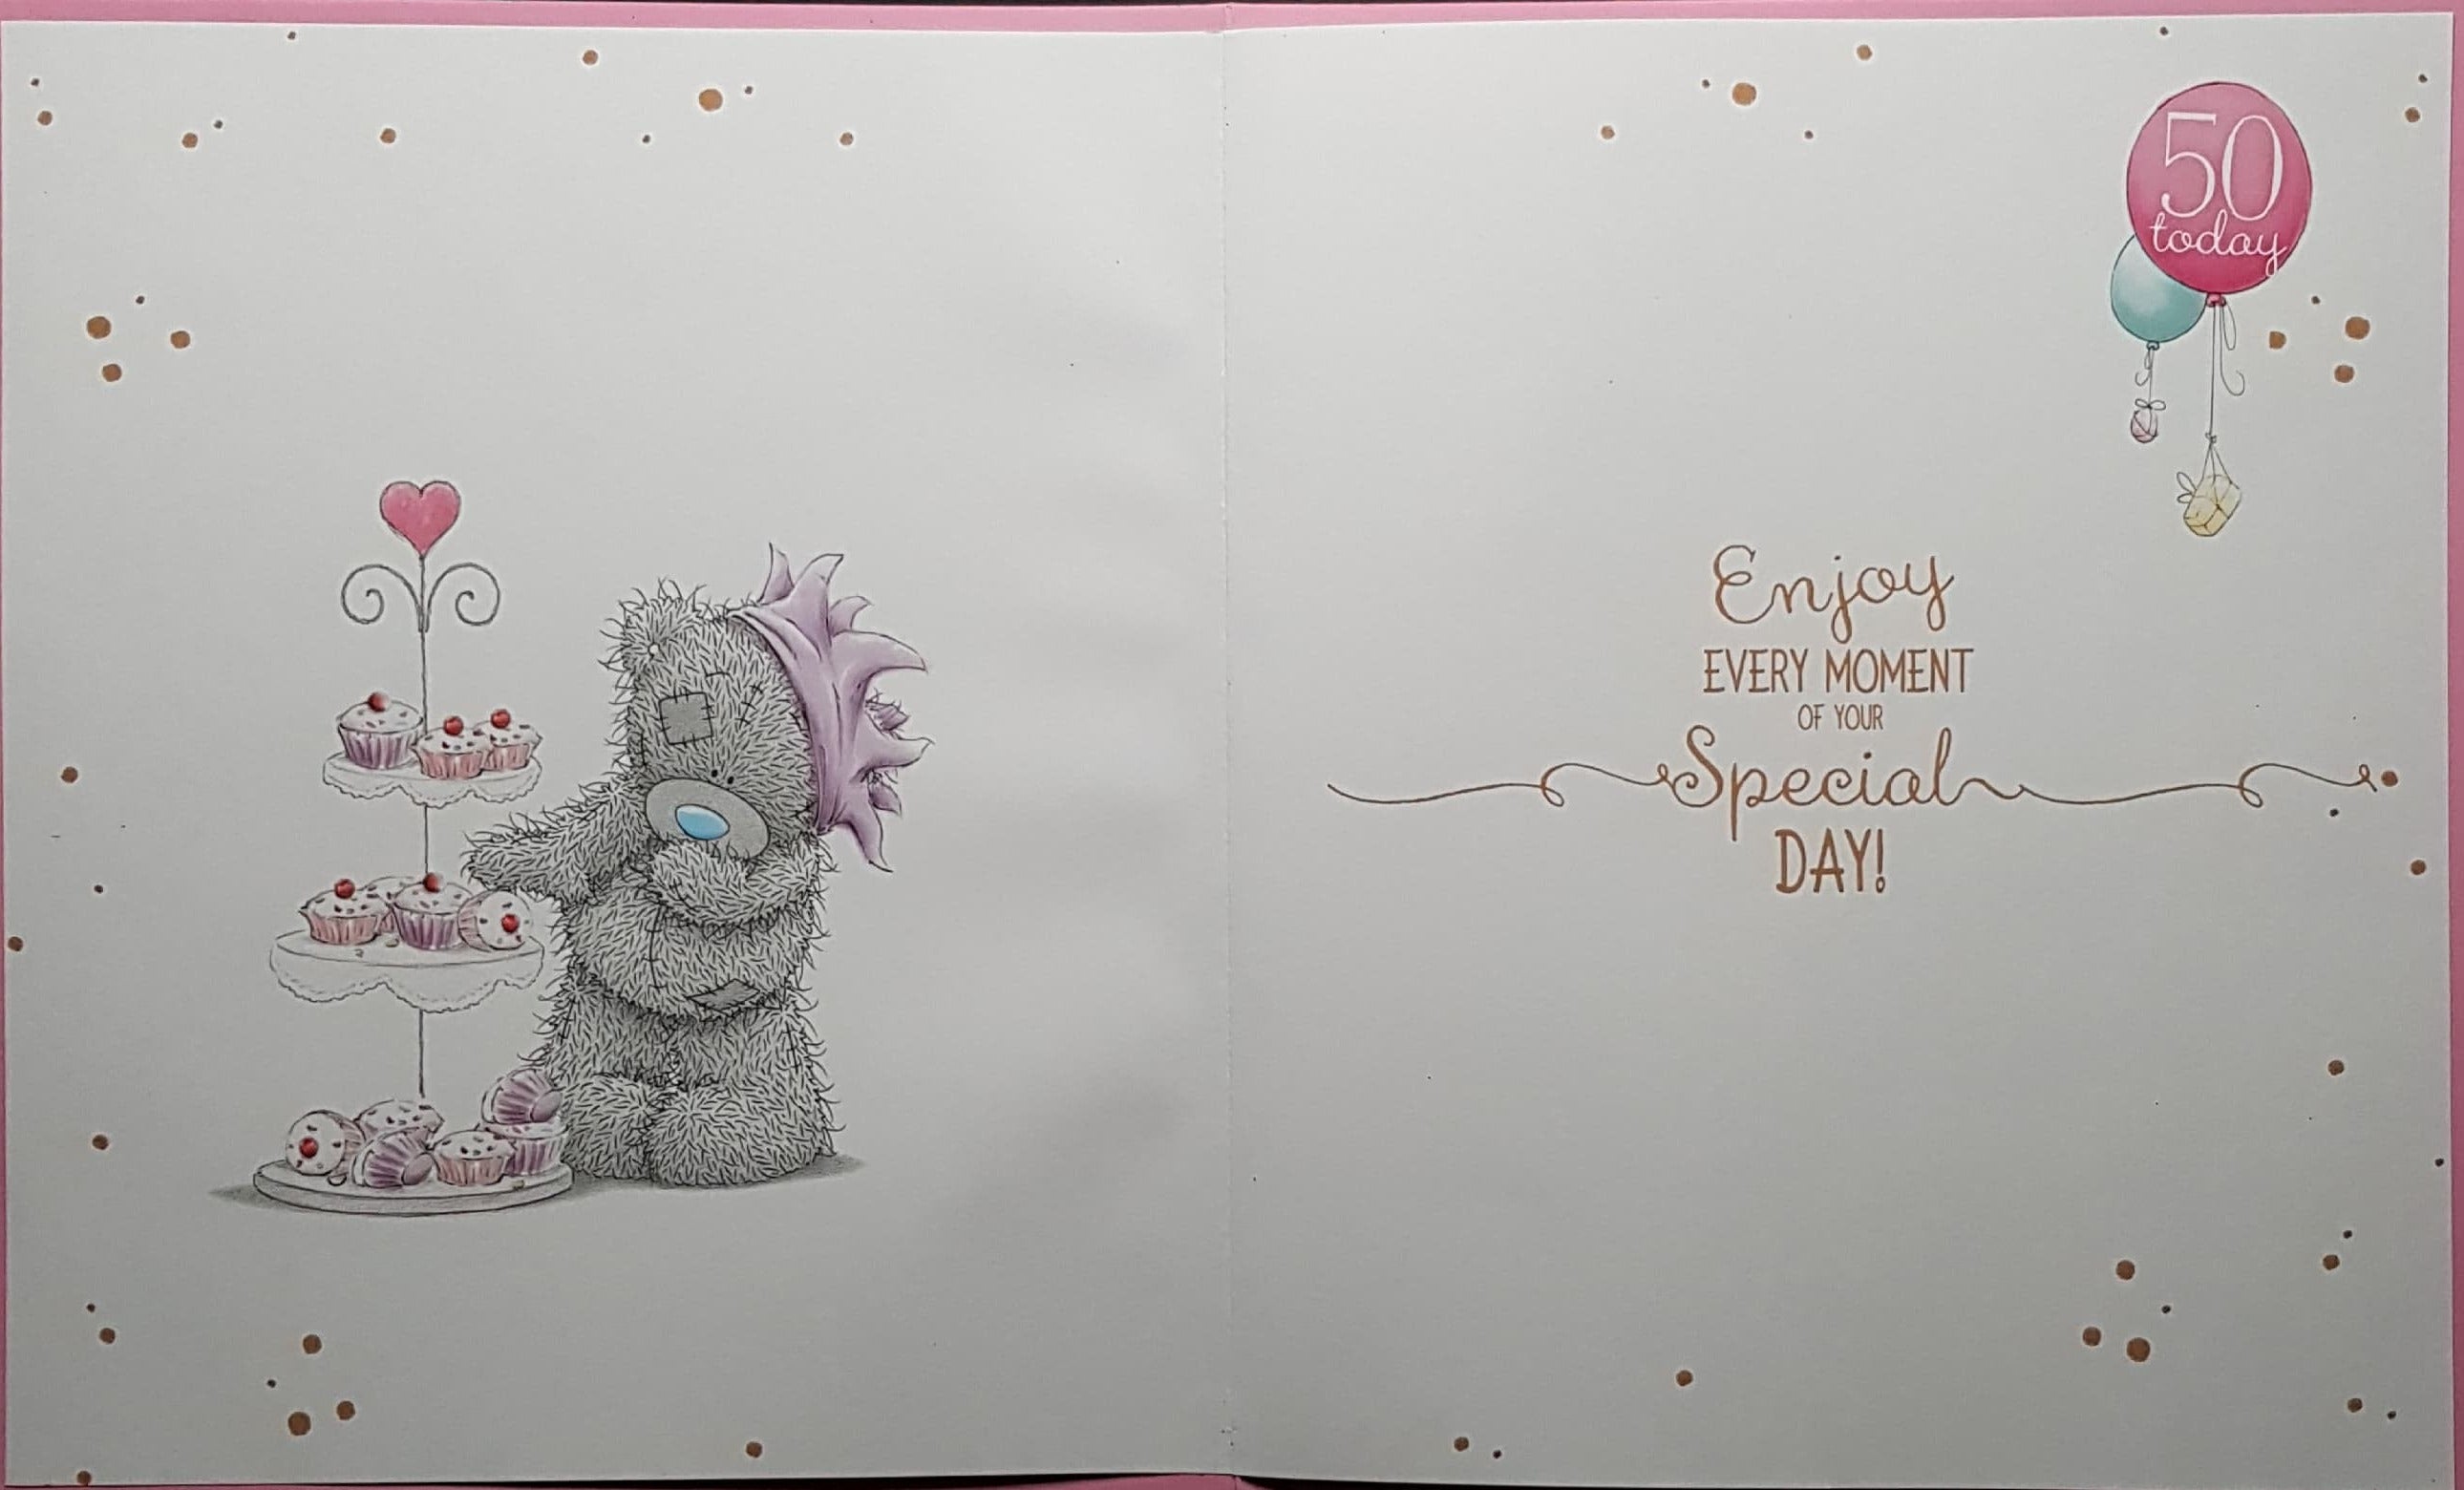 50
today
Enjoy
EVERY MOMENT
OF YOUR
Special
DAY!